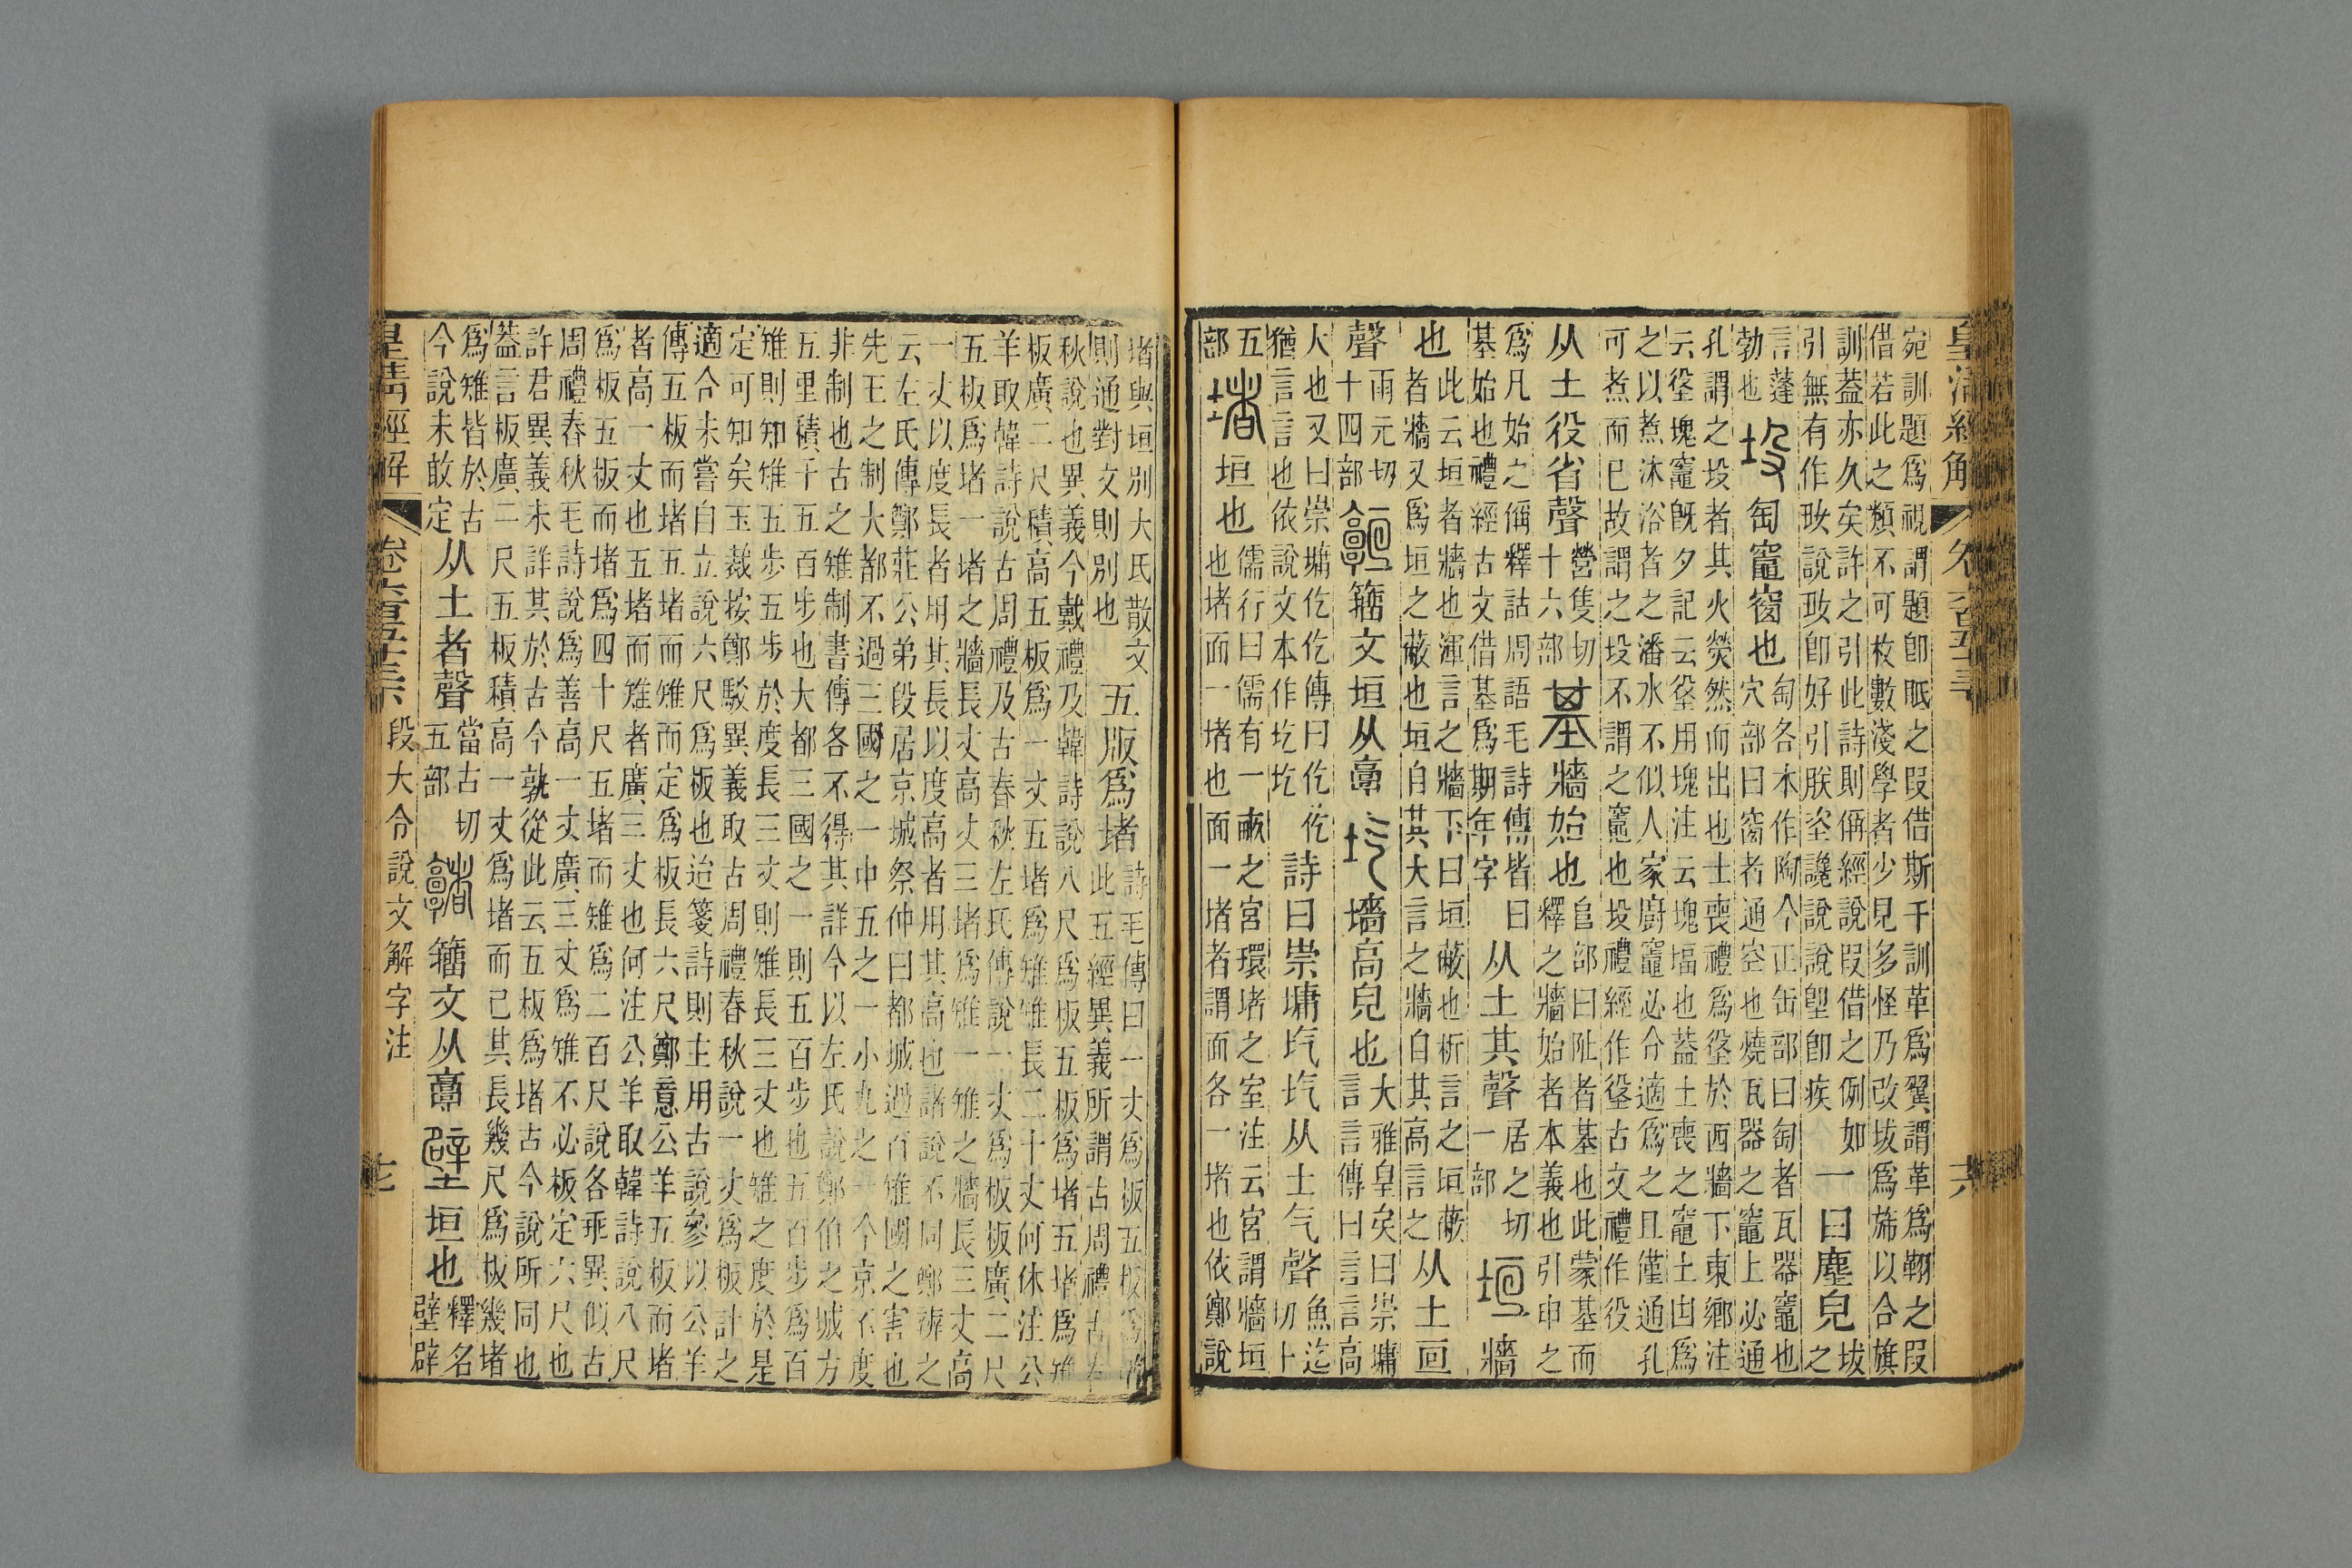 皇清經解 卷六百五十三 六
宛訓題爲視謂題卽眂之叚借斯干訓革爲翼謂革爲之叚
借若此之類不可枚數淺學者少見多怪乃改坺爲斾以合旗
訓葢亦久矣許之引此詩則偁經說叚借之例如
引無有作㱎說㱎卽好引朕堲讒說說堲卽疾
一曰塵皃
坺之
言蓬
勃也
垼匋竈窗也
匋各本作陶今正缶部曰匋者瓦器竈也
穴部曰窗者通空也燒瓦器之竈上必通
孔謂之垼者其火熒然而出也士喪禮爲垼於西牆下東鄉注
云垼塊竈旣夕記云垼用塊注云塊堛也葢士喪之竈土凷爲
之以煮沐浴者之潘水不似人家廚竈必令適爲之且僅通孔
可煮而巳故謂之垼不謂之竈也垼禮經作垼古文禮作役
从土役省聲
營隻切
十六部
基牆始也
𨸏部曰阯者基也此蒙基而
釋之牆始者本義也引申之
爲凡始之偁釋詁周語毛詩傳皆曰
基始也禮經古文借基爲期年字
从土其聲
居之切
一部
垣牆
也
此云垣者牆也渾言之牆下曰垣蔽也析言之垣蔽
者牆又爲垣之蔽也垣自其大言之牆自其高言之
从土亘
聲
雨元切
十四部
𩫫籒文垣从𩫖圪墻高皃也
大雅皇矣曰崇墉
言言傳曰言言高
大也又曰崇墉仡仡傳曰仡仡
猶言言也依說文本作圪圪
詩曰崇墉圪圪从土气聲
魚迄切十
五部
堵垣也
儒行曰儒有一畝之宮環堵之室注云宮謂牆垣
也堵面一堵也面一堵者謂面各一堵也依鄭說
堵與垣別大氏散文
則通對文則別也
五版爲堵
詩毛傳曰一丈爲板五板爲堵
此五經異義所謂古周禮古
秋說也異義今戴禮及韓詩說八尺爲板五板爲堵五堵爲雉
板廣二尺積高五板爲一丈五堵爲雉雉長二十丈何休注公
羊取韓詩說古周禮及古春秋左氏傳說一丈爲板板廣二尺
五板爲堵一堵之牆長丈高丈三堵爲雉一雉之牆長三丈高
一丈以度長者用其長以度高者用其高也諸說不同鄭辨之
云左氏傳鄭莊公弟段居京城祭仲曰都城過百雉國之害也
先王之制大都不過三國之一中五之一小九之一今京不度
非制也古之雉制書傳各不得其詳今以左氏說鄭伯之城方
五里積千五百步也大都三國之一則五百步也五百步爲百
雉則知雉五步五步於度長三丈則雉長三丈也雉之度於是
定可知矣玉裁按鄭駁異義取古周禮春秋說一丈爲板計之
適合未嘗自立說六尺爲板也迨箋詩則主用古說參以公羊
傳五板而堵五堵而雉而定爲板長六尺鄭意公羊五板而堵
者高一丈也五堵而雉者廣三丈也何注公羊取韓詩說八尺
爲板五板而堵爲四十尺五堵而雉爲二百尺說各乖異似古
周禮春秋毛詩說爲善高一丈廣三丈爲雉不必板定六尺也
許君異義未詳其於古今孰從此云五板爲堵古今說所同也
葢言板廣二尺五板積高一丈爲堵而已其長幾尺爲板幾堵
爲雉皆於古
今說未敢定
从土者聲
當古切
五部
𩫰籒文从𩫖壁垣也
釋名
壁辟
皇清經解 卷六百五十三 段大令說文解字注 七